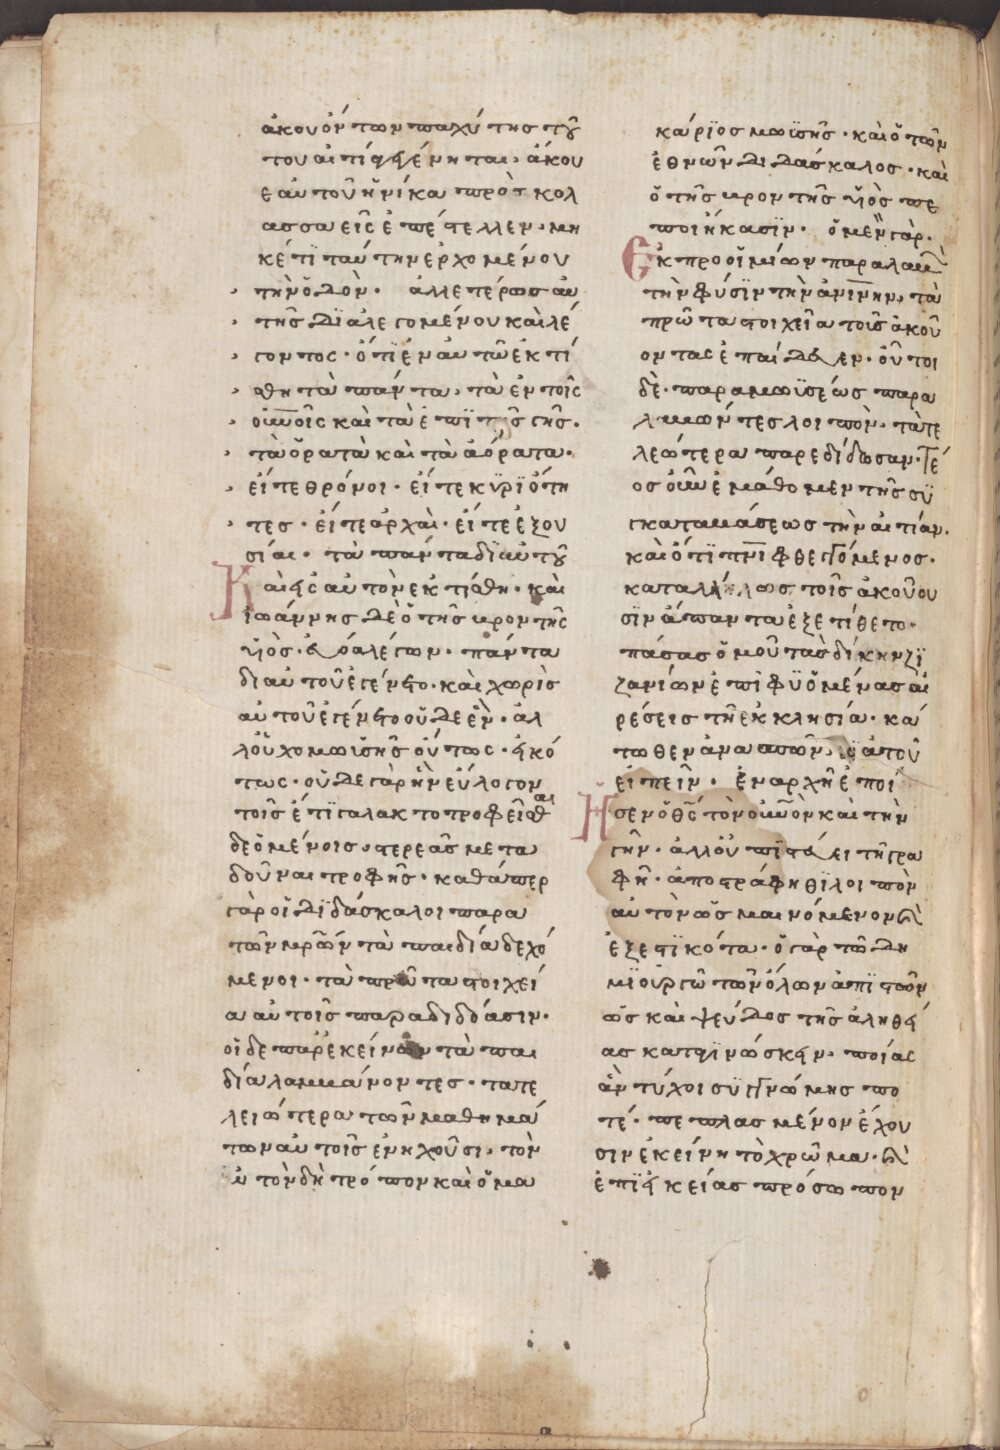 ἀκουόντων παχύτης τοῦ
του αἰτία γένηται· ἄκου
ε αὐτοῦ ἡνίκα πρὸς κολ
ασσαεῖς ἐπέστελλεν· μη
κέτι ταύτην ἐρχομένου
τὴν ὁδὸν· ἀλλ ἑτέρως αυ
τῆς διαλεγομένου καὶ λέ
γοντος· ὅτι ἐν αὐτῶ ἐκτί
σθη τὰ πάντα· τὰ ἐν τοῖς
οὐνοῖς καὶ τὰ ἐπὶ τῆς γῆς·
τὰ ὁρατὰ καὶ τὰ ἀόρατα·
εἴτε θρόνοι· εἴτε κυριότη
τες· εἴτε ἀρχαὶ· εἴτε ἐξου
σίαι· τὰ πάντα δι αὐτοῦ
Καὶ εἰς αὐτὸν ἐκτίσθη· καὶ
ἰωάννης δὲ ὁ τῆς βροντῆς
υἱὸς· ἐβόα λέγων· πάντα
δι αὐτοῦ ἐγένετο· καὶ χωρὶς
αὐτοῦ ἐγένετο οὐδε ἓν· ἀλ
λ οὐχ ὁ μωϋσῆς οὕτως· εἰκό
τως· οὐδε γὰρ ἦν εὔλογον
τοῖς ἔτι γαλακτοτροφεῖσθαι
δεομένοις στερεᾶς μετα
δοῦναι τροφῆς· καθάπερ
γὰρ οἱ διδάσκαλοι παρα
τῶν μρῶν τὰ παιδία δεχό
μενοι· τὰ πρῶτα στοιχεῖ
α αὐτοῖς παραδιδόασιν·
οἱ δε παρ ἐκείνων τὰ παι
δία λαμβάνοντες· τα τε
λειώτερα τῶν μαθημά
των αὐτοῖς ἐνηχοῦσι· τὸν
αυτὸν δὴ τρόπον καὶ ὁ μα
κάριος μωϋσῆς· καὶ ὁ τῶν
ἐθνῶν διδάσκαλος· καὶ
ὁ τῆς βροντῆς υἱὸς πε
ποιήκασιν· ὁ μὲν γὰρ·
Ἐκ προοιμίων παραλαβὼ
τὴν φύσιν τὴν ἀνινην· τὰ
πρῶτα στοιχεῖα τοῖς ἀκού
οντας ἐπαίδευεν· οὗτοι
δὲ· παρα μωϋσέως παρα
λαβόντες λοιπὸν· τὰ τε
λεώτερα παρεδίδοσαν· Τέ
ος οὖν ἐμάθομεν τῆς συ
γκαταβάσεως τὴν αἰτίαν·
καὶ ὅτι πνι φθεγγόμενος·
καταλλήλως τοῖς ἀκούου
σιν ἅπαντα ἐξετίθετο·
πάσας ὁμοῦ τὰς δίκην ζι
ζανίων ἐπιφυομένας αἱ
ρέσεις τῆ ἐκκλησία· κά
τωθεν ἀνασπῶν· ὁ αὐτοῦ
εἰπεῖν· ἐν ἀρχῆ ἐποί
Ησεν ὁ θς τὸν οὐνὸν καὶ τὴν
γῆν· ἀλλ οὐ πιστεύει τῆ γρα
φῆ· ἀποστράφηθι λοιπὸν
αὐτὸν ὡς μαινόμενον καὶ
ἐξεστικότα· ὁ γὰρ τῶ δη
μιουργῶ τῶν ὅλων ἀπιστῶν
ὡς καὶ ψεῦδος τῆς ἀληθεί
ας καταγινώσκειν· ποίας
ἂν τύχοι συγγνώμης πο
τέ· πεπλασμένον ἔχου
σιν ἐκεῖνη τὸ χρῶμα· καὶ
ἐπιεικείας πρόσωπον